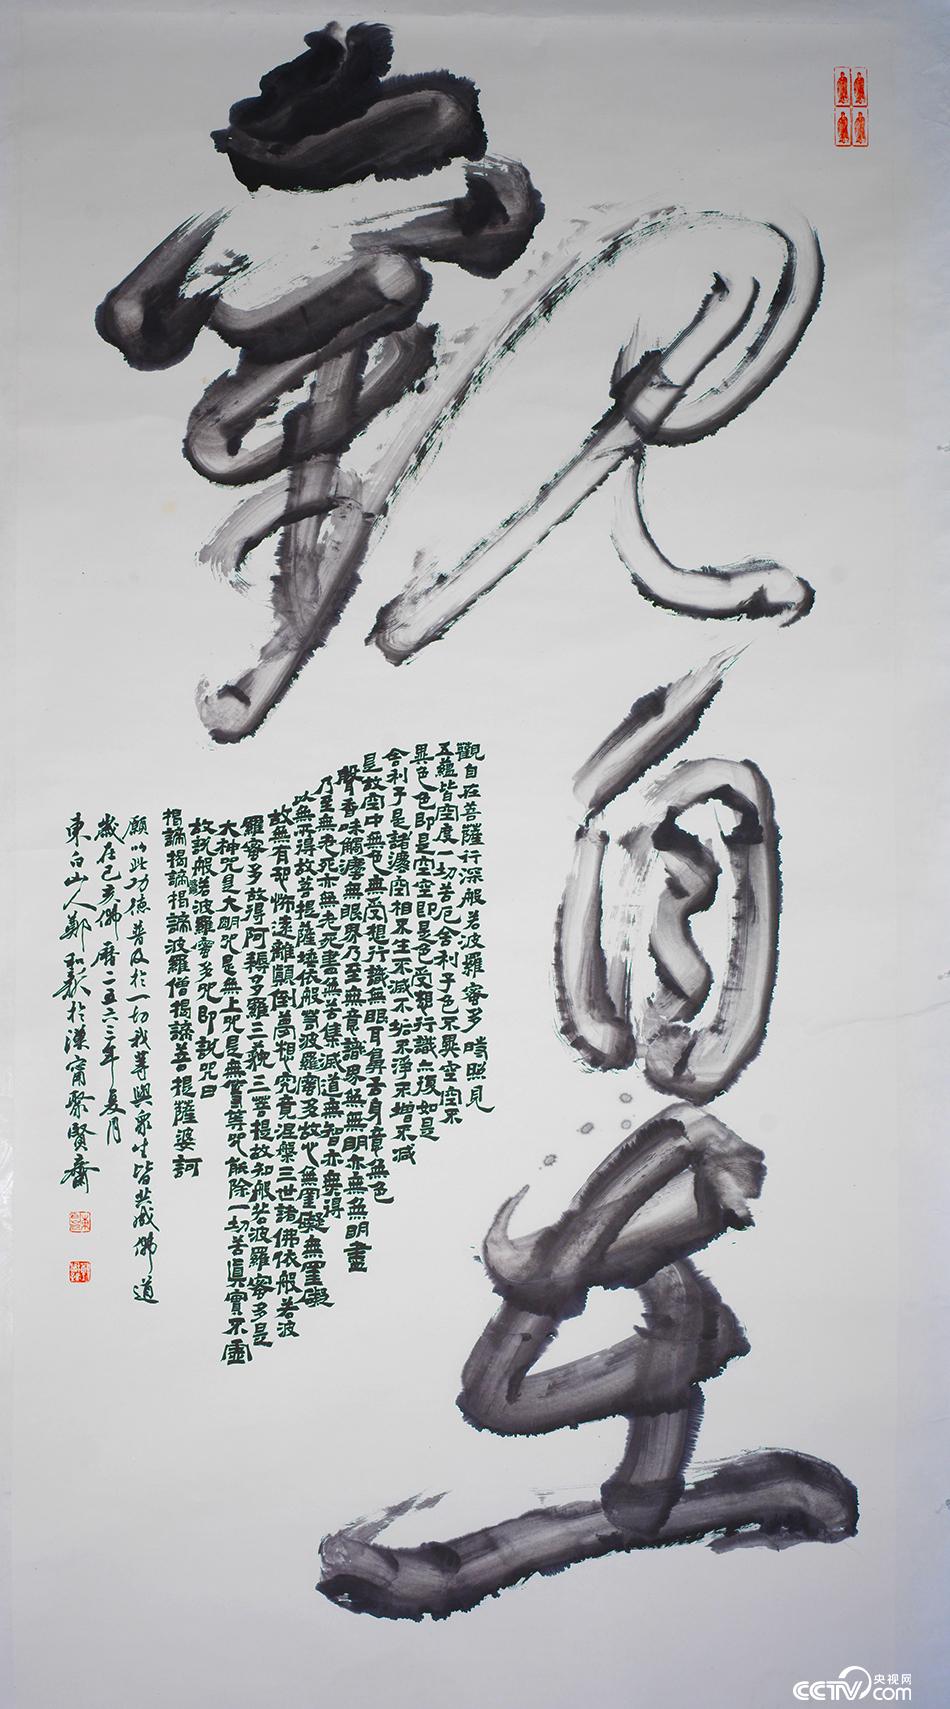 觀自在
觀自在菩薩行深般若波羅密多時照見
五蘊皆空度一切苦厄舍利子色不異空空不
異色色即是空空即是色受想行識亦復如是
舍利子是諸法空相不生不滅不垢不淨不增不減
是故空中無色無受想行識無眼耳鼻舌身意無色
聲香味觸法無眼界乃至無意識界無無明亦無無明盡
乃至無老死亦無老死盡無苦集滅道無智亦無得
以無所得故菩提薩埵依般若波羅密多故心無罣礙無罣礙
故無有恐怖遠離顛倒夢想究竟涅槃三世諸佛依般若波
羅密多故得阿耨多羅三藐三菩提故知般若波羅密多是
大神咒是大明咒是無上咒是無等等咒能除一切苦真實不虛
故說般若波羅密多咒即說咒曰
揭諦揭諦揭諦波羅僧揭諦菩提薩婆訶
願以此功德普及於一切我等與眾生皆共成佛道
歲在己亥佛曆二五六三年夏月
東白山人鄭和新於漢甯聚賢齋
CCTV 央视网
com